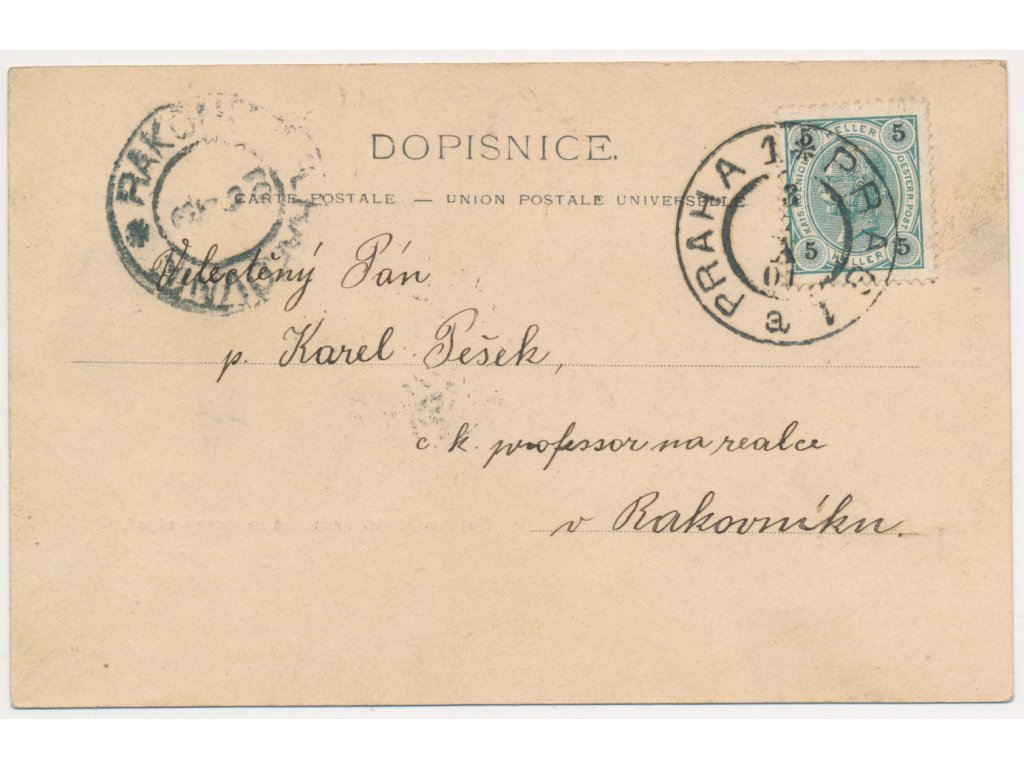 DOPISNICE.
CARTE POSTALE — UNION POSTALE UNIVERSELLE
Velectěný Pán
p. Karel Pešek,
c. k. professor na realce
v Rakovníku.
PRAHA 1 * PRAG 1
a
01
5 HELLER 5
KAIS. KOENIGL. OESTER. POST
5 HELLER 5
* RAKOVNÍK